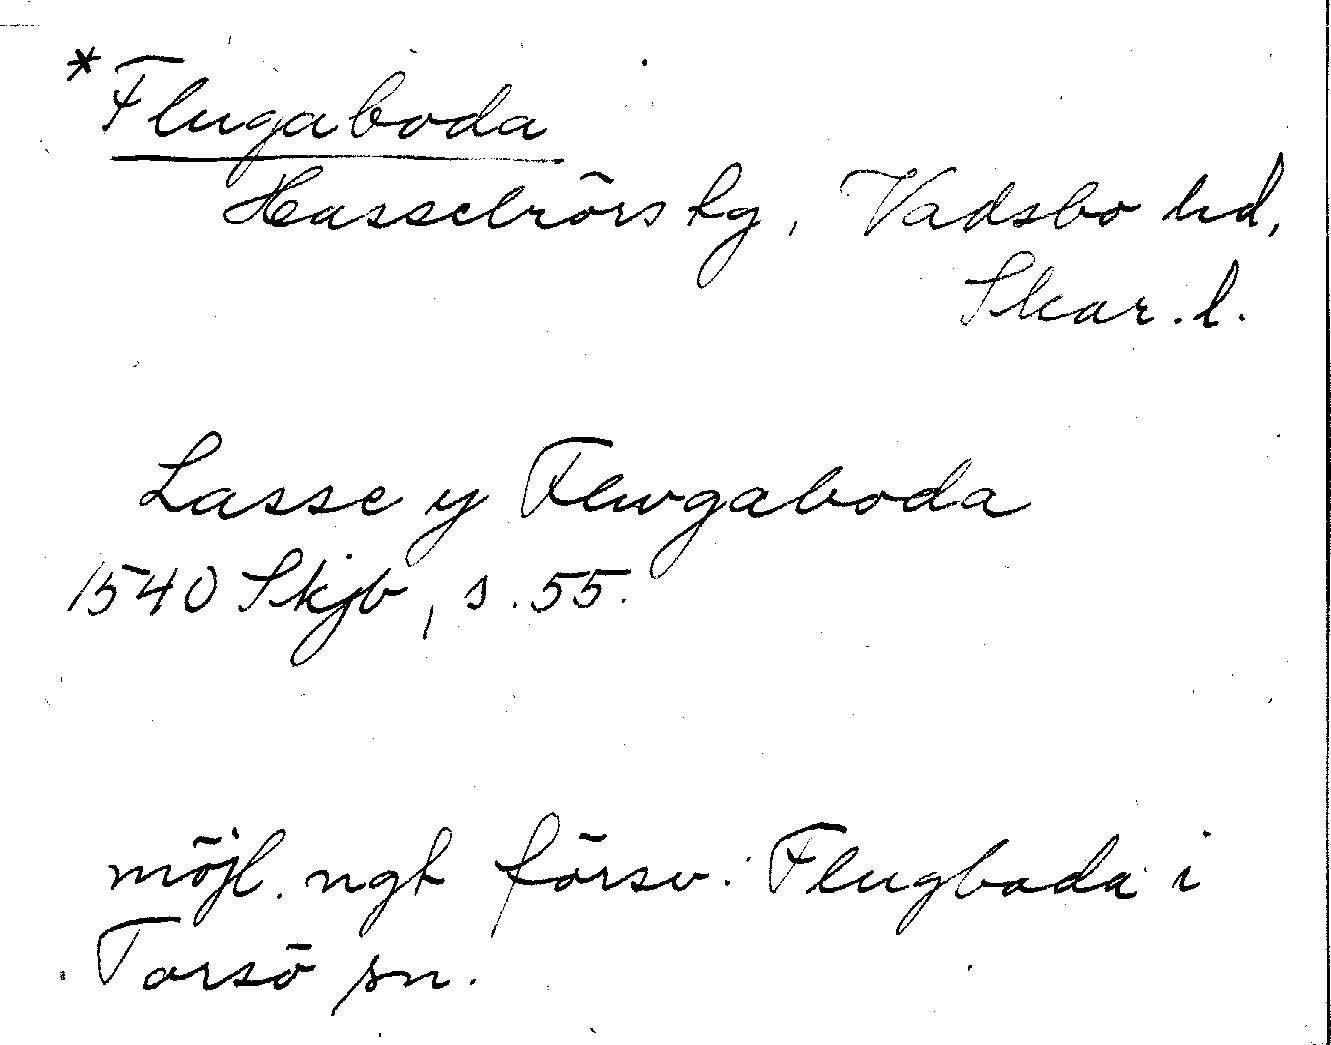 *Flugaboda
Hasselrörs hg, Vadsbo hd,
Skar. l.
Lasse y Flwgaboda
1540 Skjb, s. 55.
möjl. ngt försv. Flugboda i
Torsö sn.